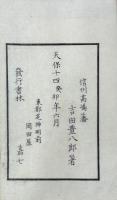 信州高嶋藩
吉田豊八郎著
天保十四癸卯年六月
東都芝神明前
岡田屋
嘉七
發行書林